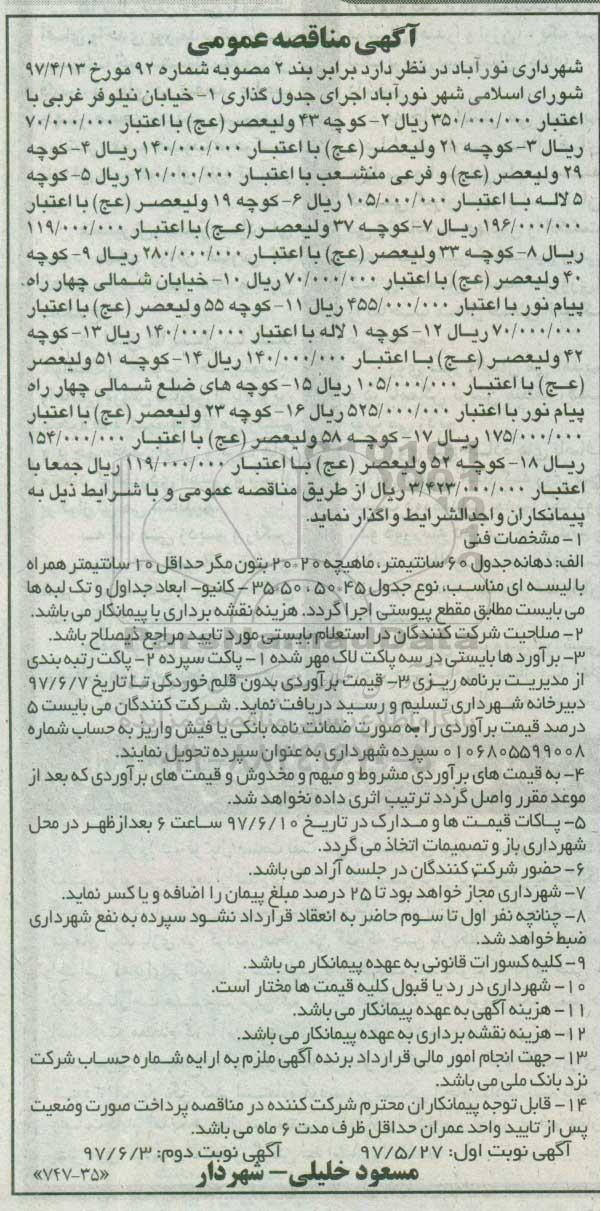 آگهی مناقصه عمومی
شهرداری نورآباد در نظر دارد برابر بند ۲ مصوبه شماره ۹۲ مورخ ۹۷/۴/۱۳
شورای اسلامی شهر نورآباد اجرای جدول گذاری ۱- خیابان نیلوفر غربی با
اعتبار ۳۵۰/۰۰۰/۰۰۰ ریال ۲- کوچه ۴۳ ولیعصر (عج) با اعتبار ۷۰/۰۰۰/۰۰۰
ریال ۳- کوچه ۲۱ ولیعصر (عج) با اعتبار ۱۴۰/۰۰۰/۰۰۰ ریال ۴- کوچه
۲۹ ولیعصر (عج) و فرعی منشعب با اعتبار ۲۱۰/۰۰۰/۰۰۰ ریال ۵- کوچه
۵ لاله با اعتبار ۱۰۵/۰۰۰/۰۰۰ ریال ۶- کوچه ۱۹ ولیعصر (عج) با اعتبار
۱۹۶/۰۰۰/۰۰۰ ریال ۷- کوچه ۳۷ ولیعصر (عج) با اعتبار ۱۱۹/۰۰۰/۰۰۰
ریال ۸- کوچه ۳۳ ولیعصر (عج) با اعتبار ۲۸۰/۰۰۰/۰۰۰ ریال ۹- کوچه
۴۰ ولیعصر (عج) با اعتبار ۷۰/۰۰۰/۰۰۰ ریال ۱۰- خیابان شمالی چهار راه
پیام نور با اعتبار ۴۵۵/۰۰۰/۰۰۰ ریال ۱۱- کوچه ۵۵ ولیعصر (عج) با اعتبار
۷۰/۰۰۰/۰۰۰ ریال ۱۲- کوچه ۱ لاله با اعتبار ۱۴۰/۰۰۰/۰۰۰ ریال ۱۳- کوچه
۴۲ ولیعصر (عج) با اعتبار ۱۴۰/۰۰۰/۰۰۰ ریال ۱۴- کوچه ۵۱ ولیعصر
(عج) با اعتبار ۱۰۵/۰۰۰/۰۰۰ ریال ۱۵- کوچه های ضلع شمالی چهار راه
پیام نور با اعتبار ۵۲۵/۰۰۰/۰۰۰ ریال ۱۶- کوچه ۲۳ ولیعصر (عج) با اعتبار
۱۷۵/۰۰۰/۰۰۰ ریال ۱۷- کوچه ۵۸ ولیعصر (عج) با اعتبار ۱۵۴/۰۰۰/۰۰۰
ریال ۱۸- کوچه ۵۲ ولیعصر (عج) با اعتبار ۱۱۹/۰۰۰/۰۰۰ ریال جمعا با
اعتبار ۳/۴۲۳/۰۰۰/۰۰۰ ریال از طریق مناقصه عمومی و با شرایط ذیل به
پیمانکاران واجدالشرایط واگذار نماید.
۱- مشخصات فنی
الف: دهانه جدول ۶۰ سانتیمتر، ماهیچه ۲۰*۲۰ بتون مگر حداقل ۱۰ سانتیمتر همراه
با لیسه ای مناسب، نوع جدول ۴۵*۵۰، ۵۰*۳۵ - کانیو- ابعاد جداول و تک لبه ها
می بایست مطابق مقطع پیوستی اجرا گردد. هزینه نقشه برداری با پیمانکار می باشد.
۲- صلاحیت شرکت کنندگان در استعلام بایستی مورد تایید مراجع ذیصلاح باشد.
۳- برآوردها بایستی در سه پاکت لاک مهر شده ۱- پاکت سپرده ۲- پاکت رتبه بندی
از مدیریت برنامه ریزی ۳- قیمت برآوردی بدون قلم خوردگی تا تاریخ ۹۷/۶/۷
دبیرخانه شهرداری تسلیم و رسید دریافت نماید. شرکت کنندگان می بایست ۵
درصد قیمت برآوردی را به صورت ضمانت نامه بانکی یا فیش واریز به حساب شماره
۰۱۰۶۸۰۵۵۹۹۰۰۸ سپرده شهرداری به عنوان سپرده تحویل نمایند.
۴- به قیمت های برآوردی مشروط و مبهم و مخدوش و قیمت های برآوردی که بعد از
موعد مقرر واصل گردد ترتیب اثری داده نخواهد شد.
۵- پاکات قیمت ها و مدارک در تاریخ ۹۷/۶/۱۰ ساعت ۶ بعدازظهر در محل
شهرداری باز و تصمیمات اتخاذ می گردد.
۶- حضور شرکت کنندگان در جلسه آزاد می باشد.
۷- شهرداری مجاز خواهد بود تا ۲۵ درصد مبلغ پیمان را اضافه و یا کسر نماید.
۸- چنانچه نفر اول تا سوم حاضر به انعقاد قرارداد نشود سپرده به نفع شهرداری
ضبط خواهد شد.
۹- کلیه کسورات قانونی به عهده پیمانکار می باشد.
۱۰- شهرداری در رد یا قبول کلیه قیمت ها مختار است.
۱۱- هزینه آگهی به عهده پیمانکار می باشد.
۱۲- هزینه نقشه برداری به عهده پیمانکار می باشد.
۱۳- جهت انجام امور مالی قرارداد برنده آگهی ملزم به ارایه شماره حساب شرکت
نزد بانک ملی می باشد.
۱۴- قابل توجه پیمانکاران محترم شرکت کننده در مناقصه پرداخت صورت وضعیت
پس از تایید واحد عمران حداقل ظرف مدت ۶ ماه می باشد.
آگهی نوبت اول: ۹۷/۵/۲۷ آگهی نوبت دوم: ۹۷/۶/۳
مسعود خلیلی - شهردار
«۷۴۷-۳۵»